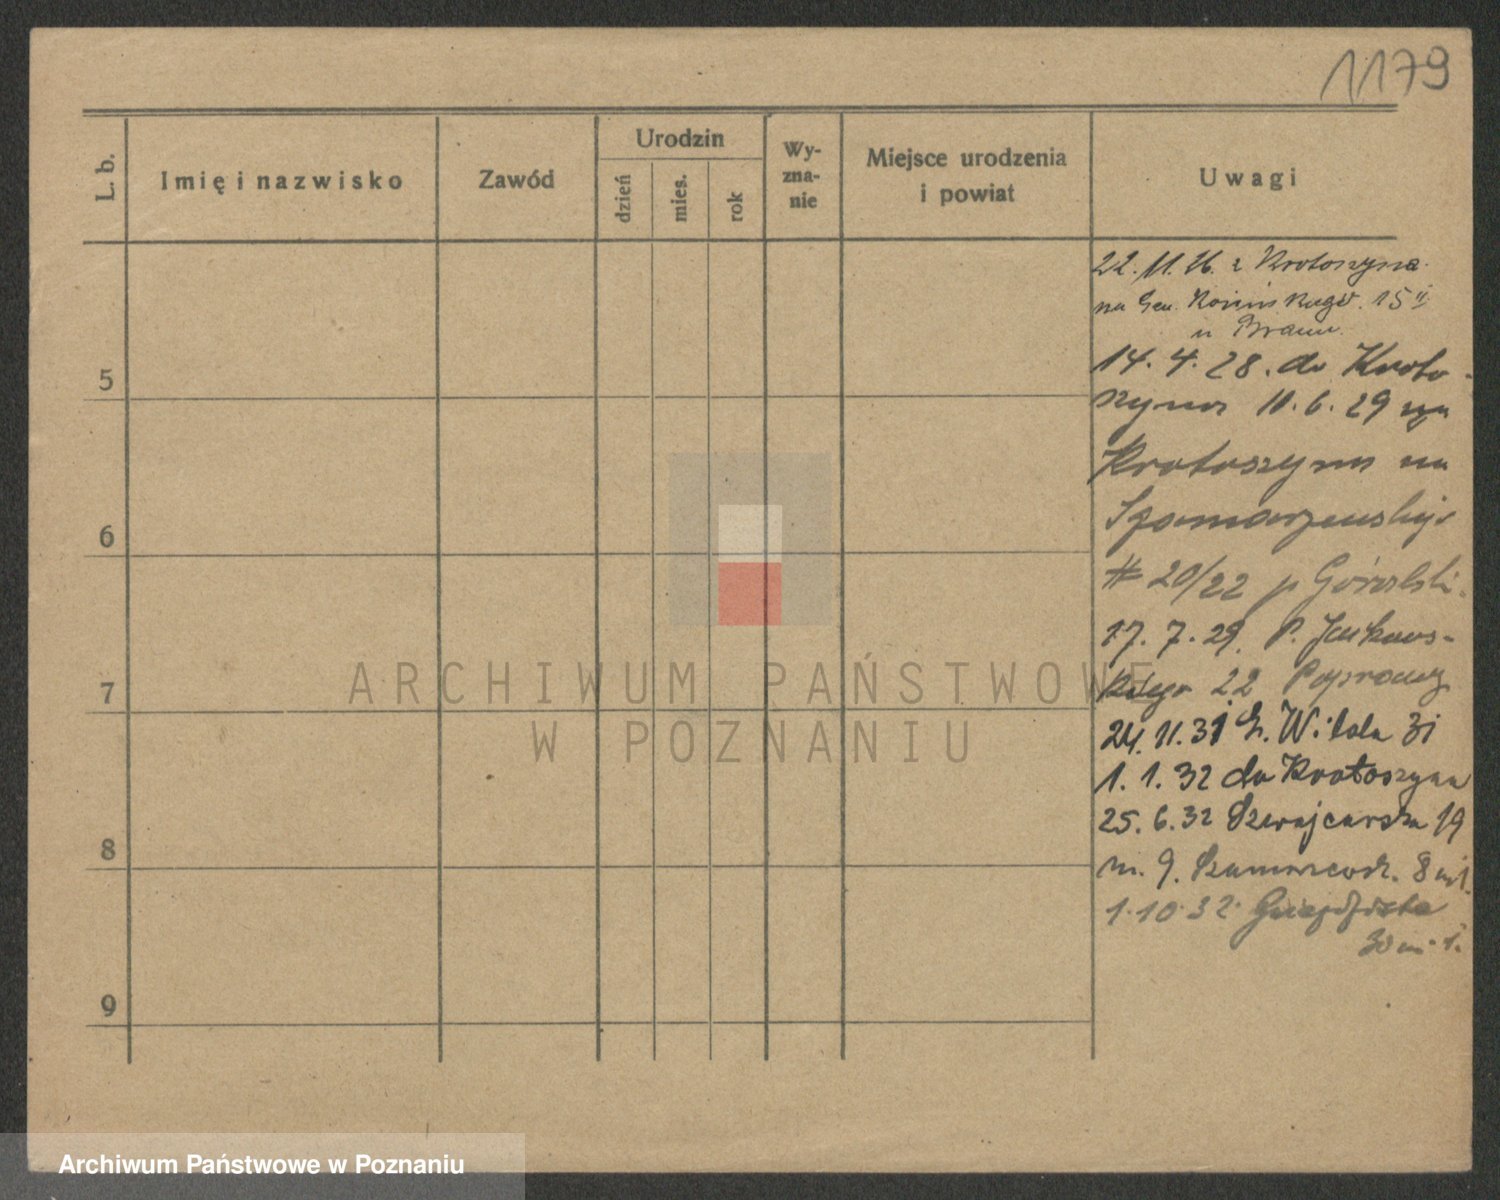 1179
L. b.
Imię i nazwisko
Zawód
Urodzin
dzień
mies.
rok
Wy-
zna-
nie
Miejsce urodzenia
i powiat
Uwagi
22. 11. 26. z Krotoszyna
na Gen. 15 II
u
14. 4. 28. do Kroto-
szyna 11. 6. 29 z
Krotoszyna na
Szamarzewskiego
# 20/22 p Góralski.
17. 7. 29. P.
kiego 22
24. 11. 31 G. Wilda 31
1. 1. 32 do Krotoszyna
25. 6. 32 Szwajcarska 19
m. 9. 8 m 1.
1. 10. 32.
30 m. 1.
5
6
7
8
9
ARCHIWUM PAŃSTWOWE
W POZNANIU
Archiwum Państwowe w Poznaniu